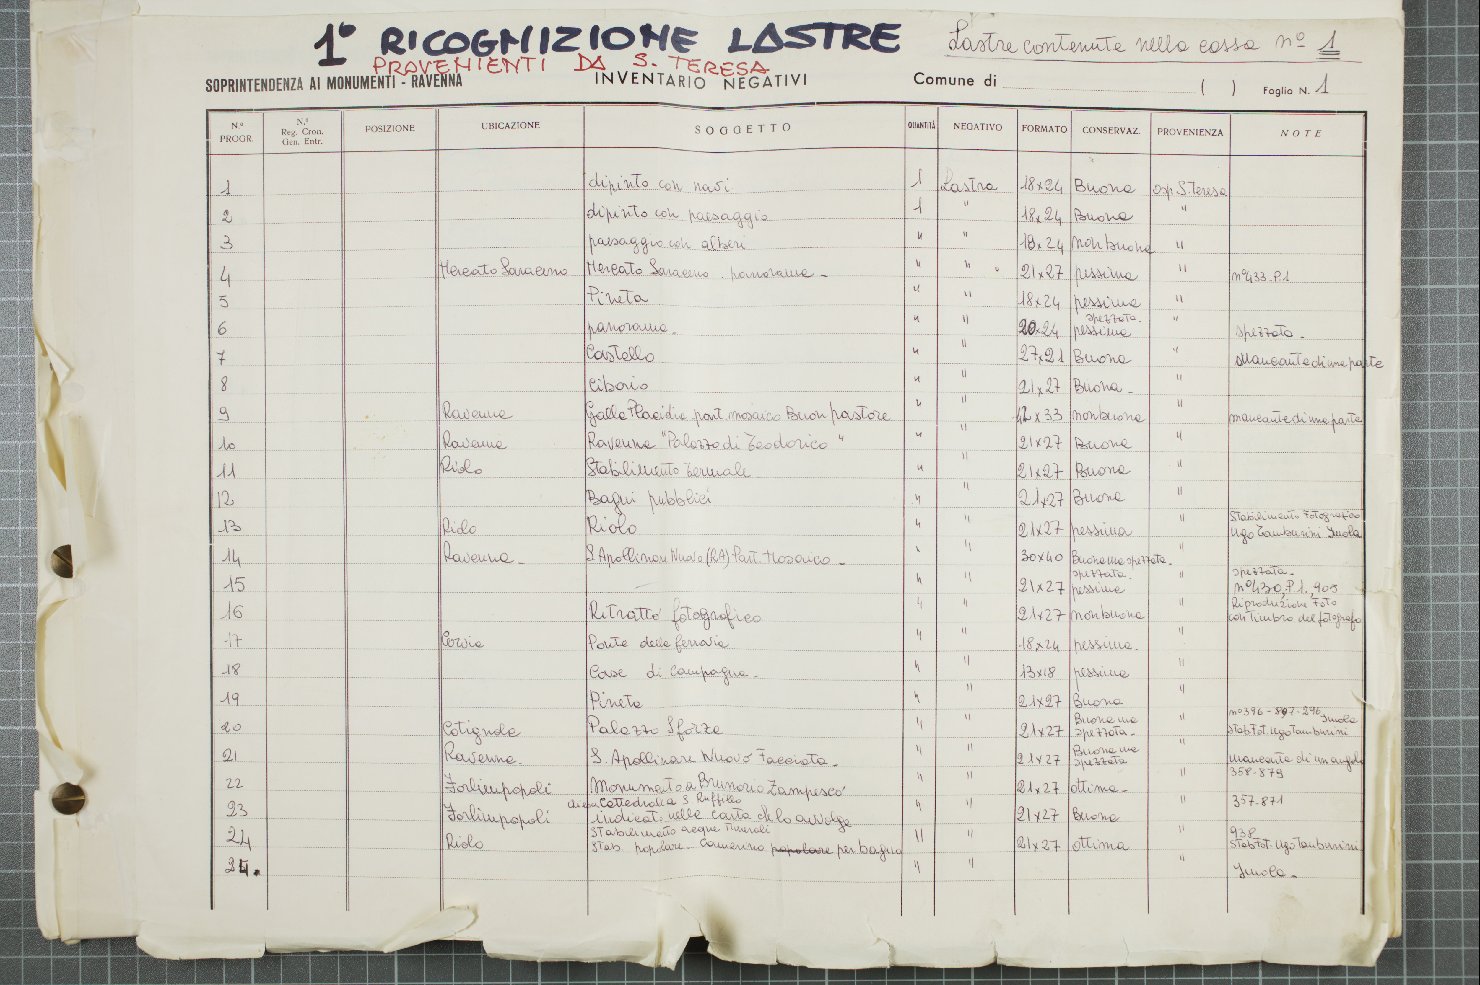 1° RICOGNIZIONE LASTRE
Lastre contenute nella cassa n° 1
PROVENIENTI DA S. TERESA
SOPRINTENDENZA AI MONUMENTI - RAVENNA INVENTARIO NEGATIVI Comune di ( ) Foglio N. 1
N.° PROGR. N.° Reg. Cron. Gen. Entr. POSIZIONE UBICAZIONE SOGGETTO QUANTITÀ NEGATIVO FORMATO CONSERVAZ. PROVENIENZA NOTE
1 dipinto con navi 1 Lastra 18x24 Buona osp S. Teresa
2 dipinto con paesaggio 1 " 18x24 Buona "
3 paesaggio con alberi " " 18x24 non buona "
4 Mercato Saraceno Mercato Saraceno panorama - " " 21x27 pessima " n° 433.P.1
5 Pineta " " 18x24 pessima "
6 panorama - " " 20x24 spezzata. pessima " spezzata.
7 Castello " " 27x21 Buona " Mancante di una parte
8 Ciborio " " 21x27 Buona - "
9 Ravenna Galla Placidia part. mosaico Buon pastore " " x33 non buona " mancante di una parte
10 Ravenna Ravenna "Palazzo di Teodorico" " " 21x27 Buona "
11 Riolo Stabilimento termale " " 21x27 Buona "
12 Bagni pubblici " " 21x27 Buona "
13 Riolo Riolo " " 21x27 pessima " Stabilimento Fotografico Ugo Tamburini Imola
14 Ravenna - S. Apollinare Nuovo (RA) Part. Mosaico - " " 30x40 Buona ma spezzata. "
15 " " 21x27 spezzata. pessima " spezzata - n° 430, P.1., 905
16 Ritratto fotografico " " 21x27 non buona " Riproduzione Foto con timbro del fotografo
17 Cervia Ponte della ferrovia " " 18x24 pessima. "
18 Case di Campagna - " " 13x18 pessima "
19 Pineta " " 21x27 Buona "
20 Cotignola Palazzo Sforza " " 21x27 Buona ma spezzata - " n° 396 - - 296 Imola Stab Fot. Ugo Tamburini
21 Ravenna. S. Apollinare Nuovo Facciata - " " 21x27 Buona ma spezzata " mancante di un angolo
22 Forlimpopoli Monumento a Brunoro Zampesco " " 21x27 ottima - " 358-879
23 Forlimpopoli chiesa Cattedrale S Ruffillo indicat. nella carta che lo avvolge " " 21x27 Buona " 357-871
24 Riolo Stabilimento acque minerali Stab. popolare - Camerino popolare per bagno " " 21x27 ottima " 938 Stab Fot. Ugo Tamburini
24. " " " Imola -